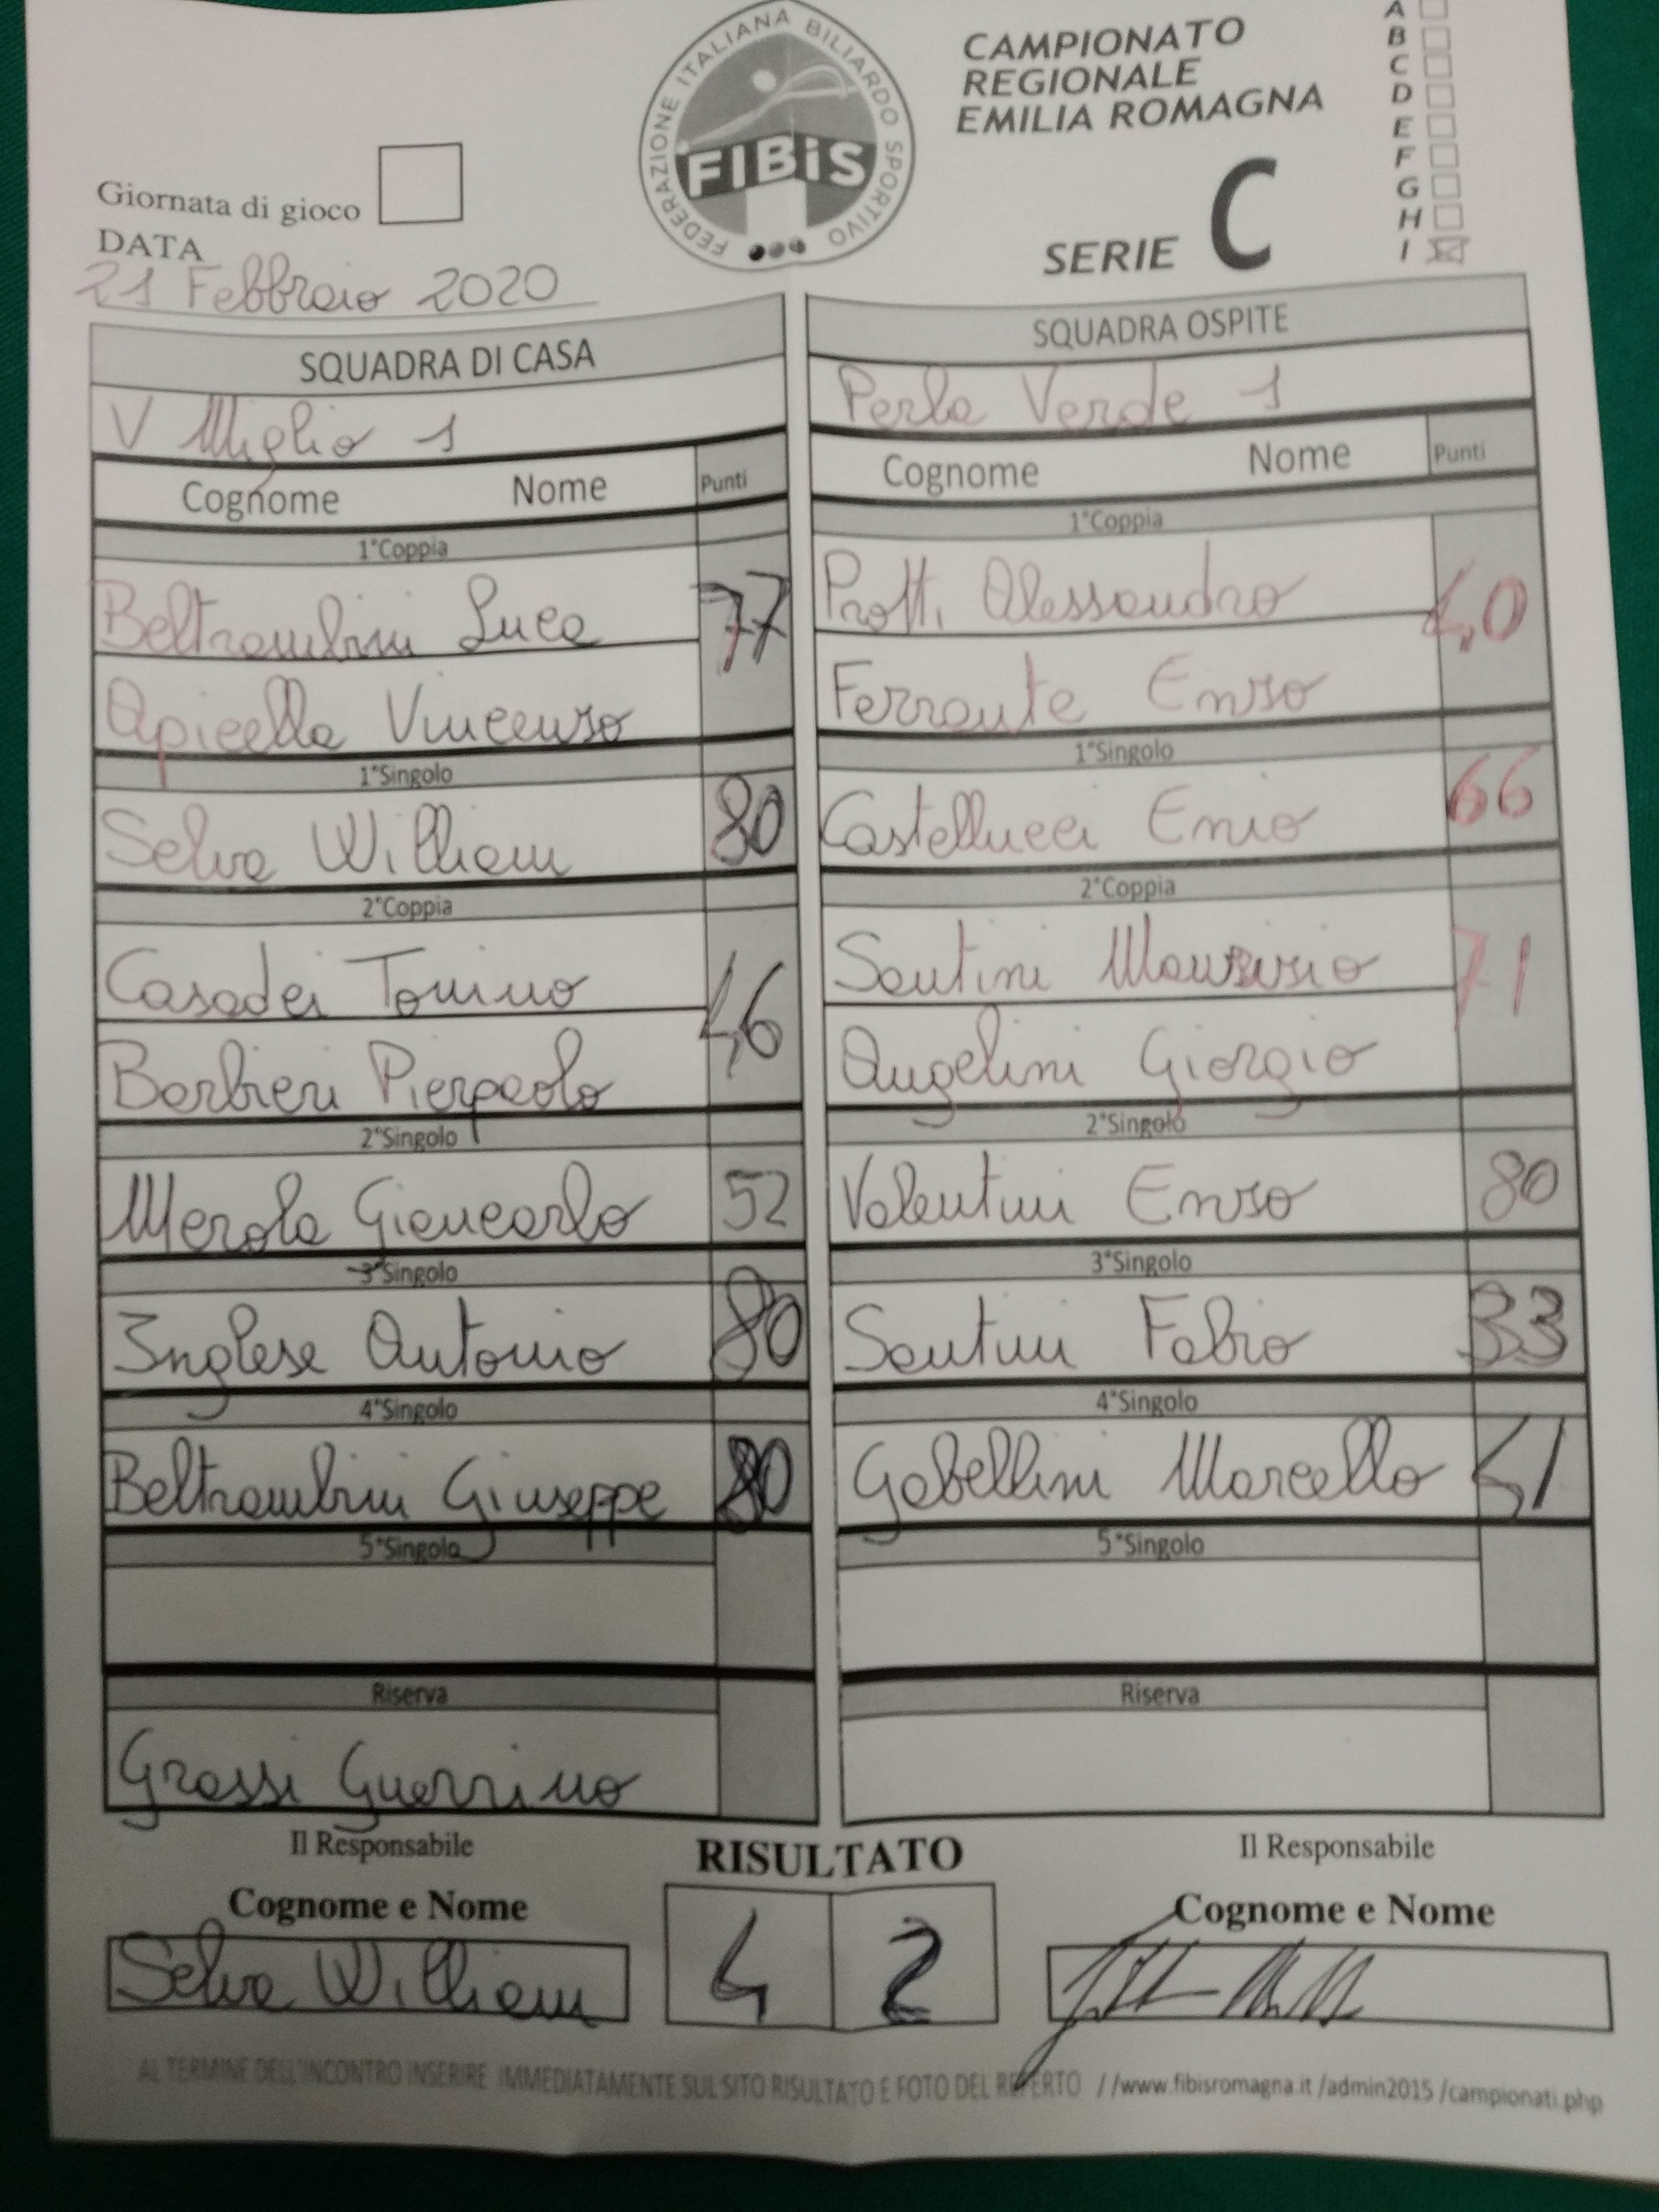 FEDERAZIONE ITALIANA BILIARDO SPORTIVO
FIBiS
CAMPIONATO
REGIONALE
EMILIA ROMAGNA
SERIE C
A
B
C
D
E
F
G
H
I
Giornata di gioco
DATA
21 Febbraio 2020
SQUADRA DI CASA
V Miglio 1
Cognome Nome Punti
1°Coppia
Beltrambini Luca 77
Apicella Vincenzo
1°Singolo
Selva William 80
2°Coppia
Casadei Tonino 46
Barbieri Pierpaolo
2°Singolo
Merola Giancarlo 52
3°Singolo
Inglese Antonio 80
4°Singolo
Beltrambini Giuseppe 80
5°Singolo
Riserva
Grassi Guerrino
SQUADRA OSPITE
Perla Verde 1
Cognome Nome Punti
1°Coppia
Protti Alessandro 40
Ferrante Enzo
1°Singolo
Castellucci Enio 66
2°Coppia
Santini Maurizio 71
Angelini Giorgio
2°Singolo
Valentini Enzo 80
3°Singolo
Santini Fabio 33
4°Singolo
Gabellini Marcello 41
5°Singolo
Riserva
Il Responsabile
Cognome e Nome
Selva William
RISULTATO
4 2
Il Responsabile
Cognome e Nome
AL TERMINE DELL'INCONTRO INSERIRE IMMEDIATAMENTE SUL SITO RISULTATO E FOTO DEL REFERTO //www.fibisromagna.it /admin2015 /campionati.php